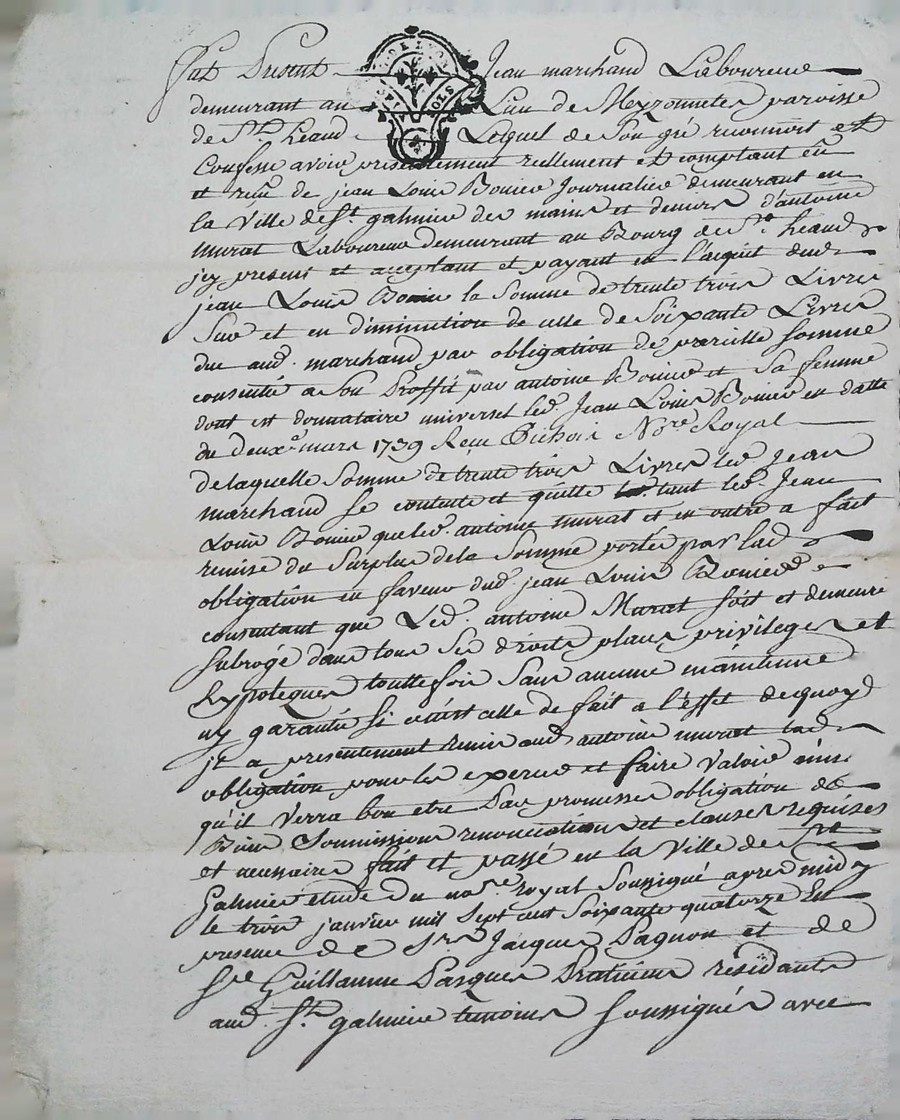 fut present Jean marchand Laboureur
demeurant au Lieu de Meyzonnetes paroisse
de Ste heand Lequel de son gré reconnoit et
Confesse avoir presentement reellement et comptant eû
et reçu de jean Louis Bonier Journalier demeurant en
la Ville de St galmier des mains et deniers d'antoine
murat Laboureur demeurant au Bourg de Ste heand
jcy present et acceptant et payant en l'acquit dud
jean Louis Bonier la Somme de trente trois Livres
Sur et en diminution de celle de Soixante Livres
due aud. marchand par obligation de pareille somme
consentie a Son Proffit par antoine Bonier et Sa femme
dont est donnataire universel led Jean Louis Bonier en datte
du deuxe mars 1739 Reçu Nore Royal
de laquelle Somme de trente trois Livres led jean
marchand se contente et quitte tant led. Jean
Louis Bonier que led. antoine murat et en outre a fait
remise du Surplus de la Somme portée par lad
obligation en faveur dud jean Louis Bonier
consentant que Led. antoine Murat soit et demeure
subrogé dans tous Ses droits places privileges et
hypoteques touttefois Sans aucune maintenue
ny garantie si cen'est celle de fait a l'effet dequoy
jl a presentement remis aud antoine murat lad
obligation pour les exercer et faire Valoir ainsi
qu'il Verra bon etre Par promesses obligation de
Biens Soumissions renonciations et clauses requises
et necessaires fait et passé en la Ville de St
Galmier étude du nore royal Soussigné apres midy
le trois janvier mil sept cent Soixante quatorze En
presence de Sr Jacques Pagnon et de
Sr Guillaume Pasquier Praticiens résidants
aud. St galmier temoins soussignés avec